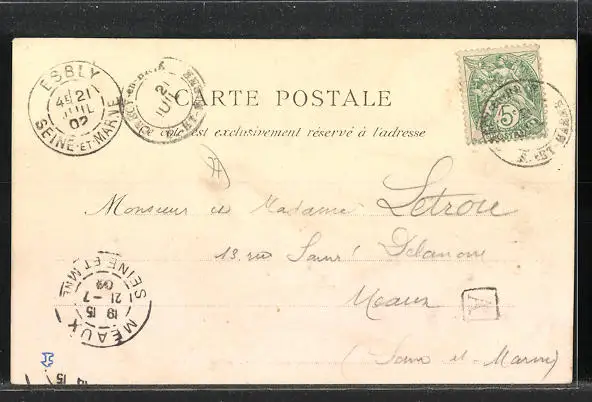 ESBLY
4E 21
JUIL
02
SEINE-ET-MARNE
21
JUIL
CARTE POSTALE
Ce côté est exclusivement réservé à l'adresse
5c
POSTES
ET MARNE
Monsieur et Madame Letrou
13 rue
Meaux
A
(Seine et Marne)
SEINE ET MNE
21 - 7
02
19 15
MEAUX